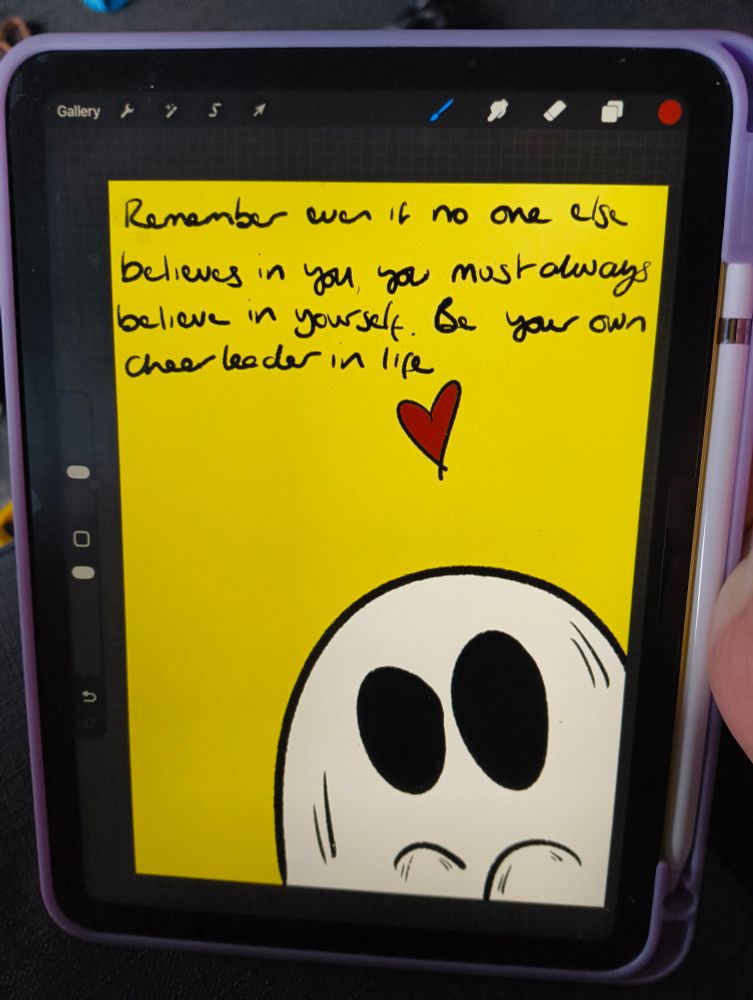 Gallery
Remember even if no one else
believes in you, you must always
believe in yourself. Be your own
cheerleader in life